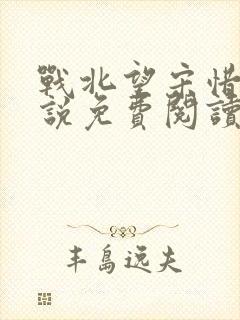 戰北望宋惜
說免費閱讀
丰島逸夫